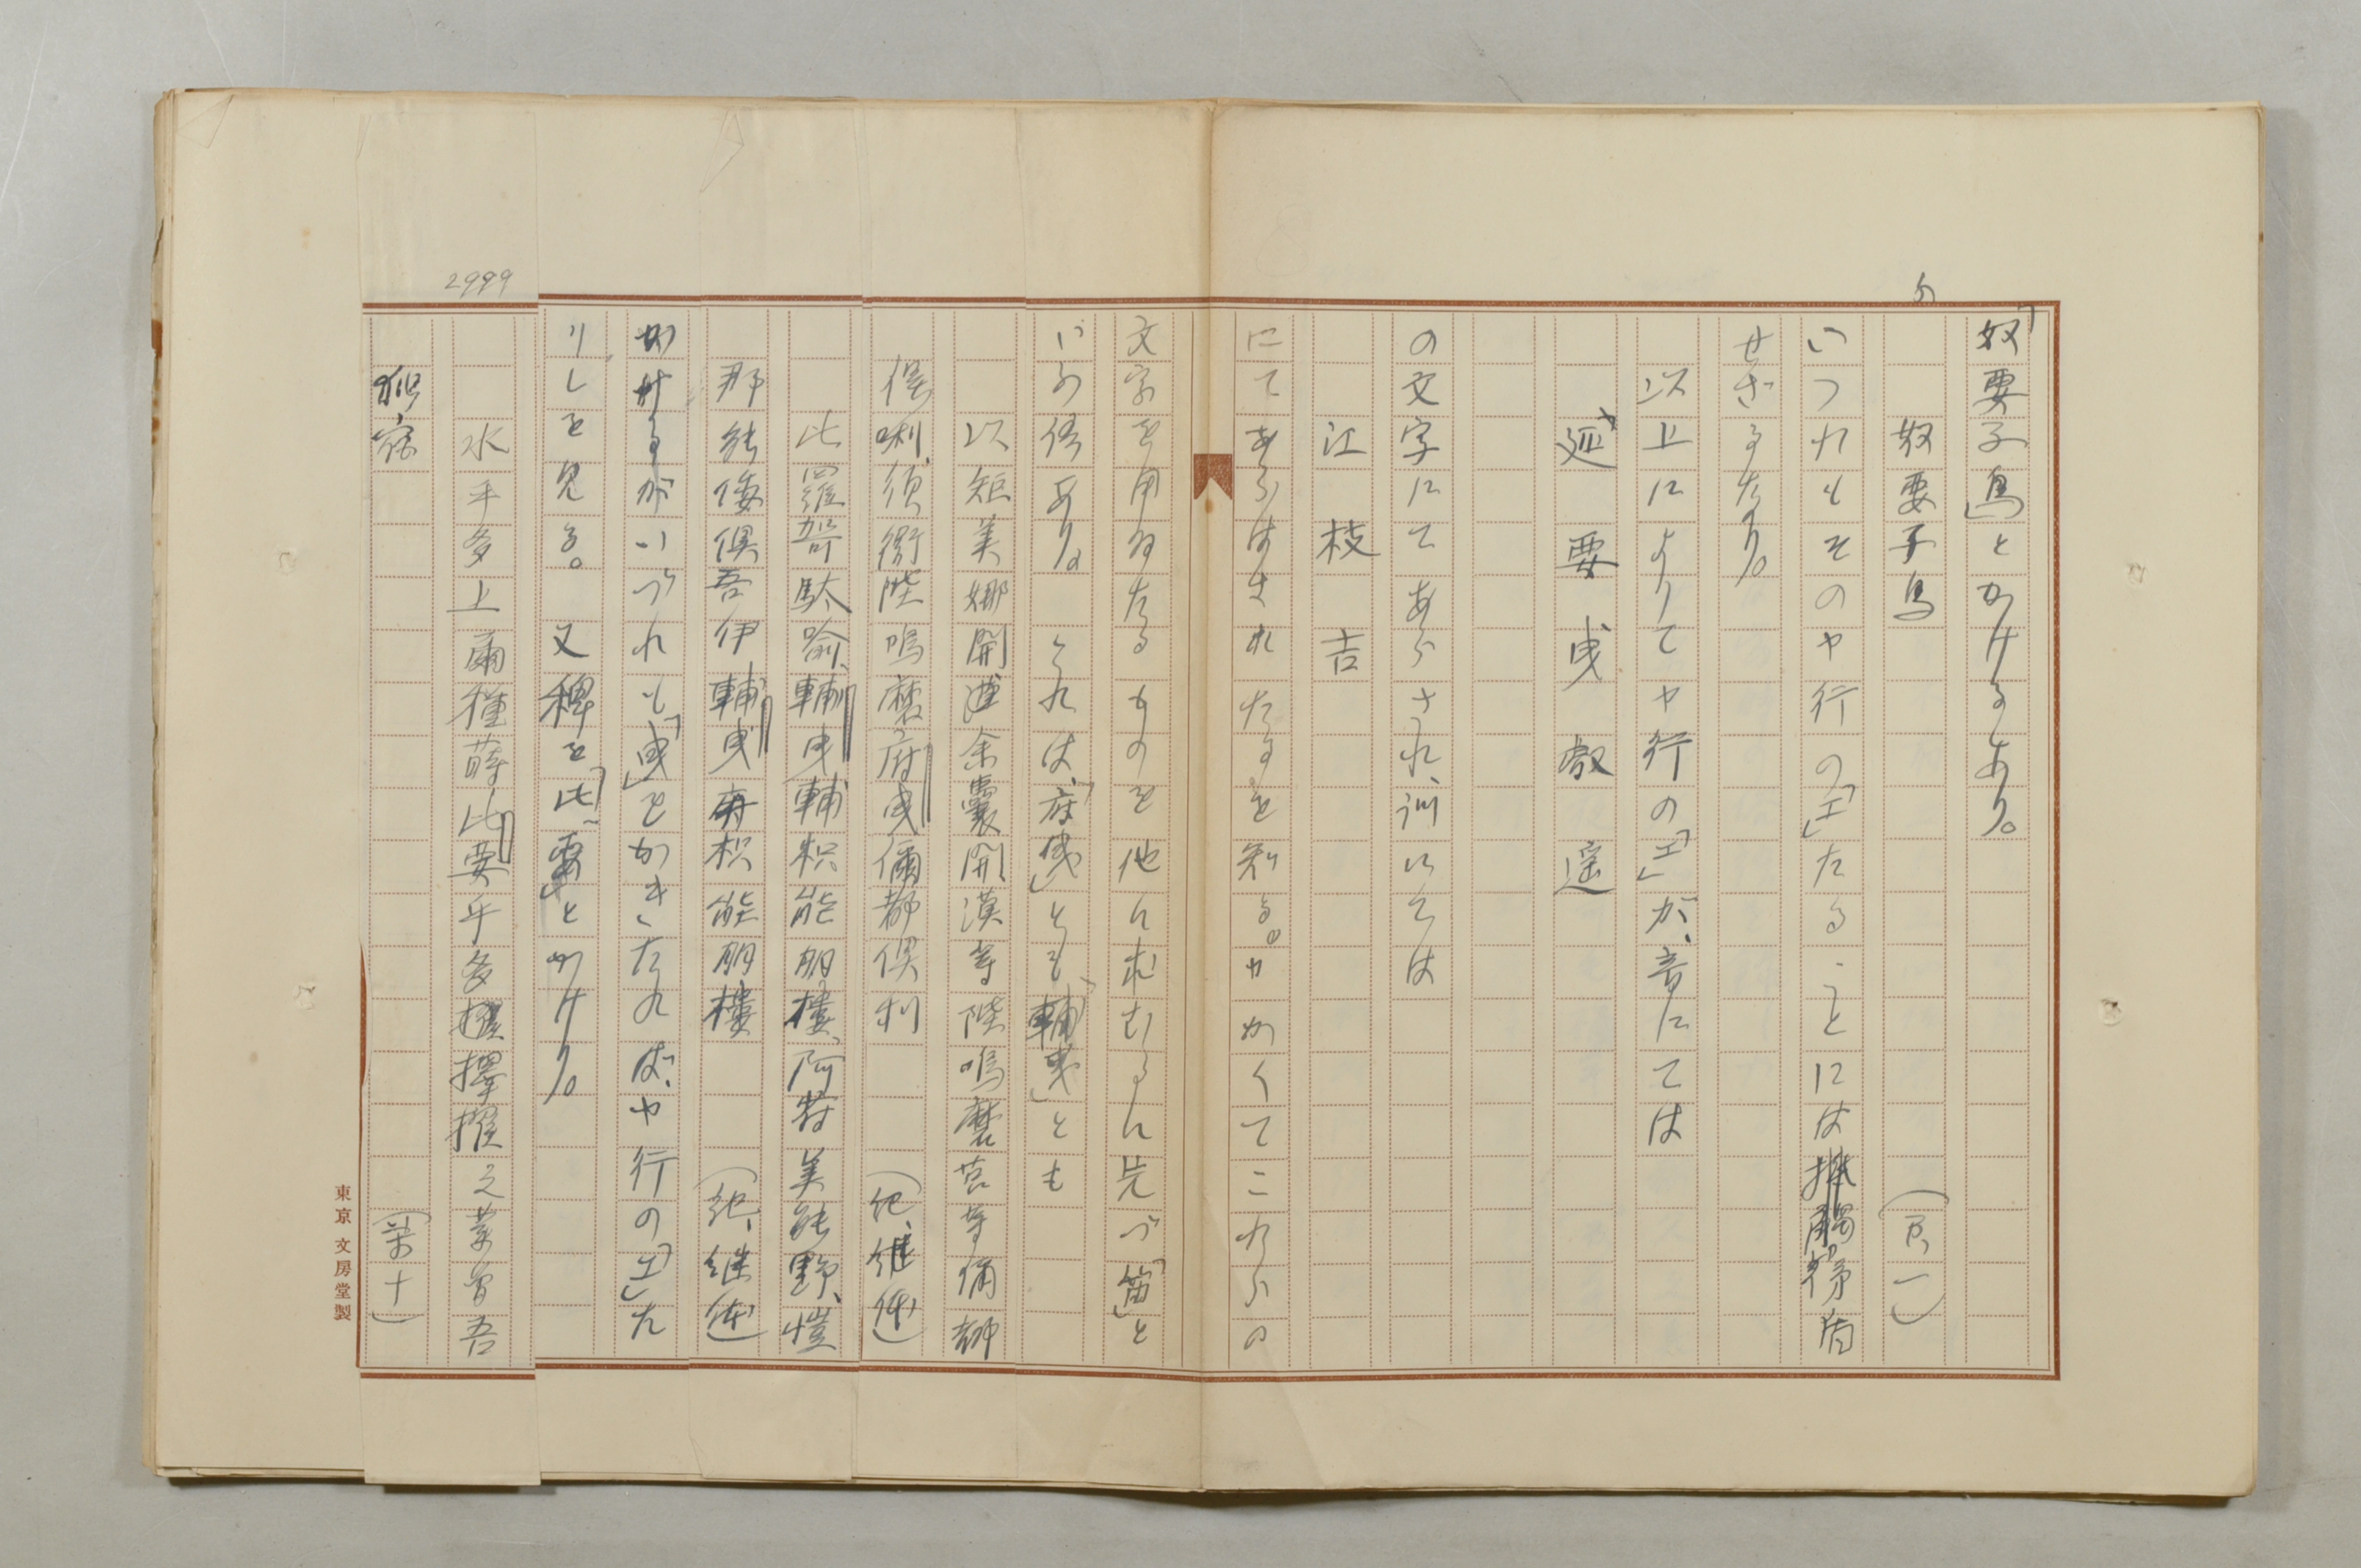 「奴要子鳥」とかけるあり。
奴要子鳥 (万、一)
の
いつれもそのヤ行の「エ」たることには牴觸矛盾
せざるなり。
以上によりてヤ行の「エ」が、音にては
延 要 曳 叡 遥
の文字にてあらされ、訓にては
江 枝 吉
にてあらはされたるを知る。かくてこれらの
文字を用ゐたるものを他に求むるに先づ「笛」と
いふ俗あり。これは、「府曳」とも「輔曳」とも
以矩美娜開遄余囊開漢等陛嗚麼
倶唎、須衞陛嗚麼府曳儞都倶利 (紀、継体)
比羅駄喩、輔曳輔枳能朋樓、阿符美能野、愷
那能倭倶吾伊輔曳輔枳能朋樓 (紀、継体)
かけるがいづれも「曳」をかきたれば、ヤ行の「エ」た
りしを見る。又稗を「比要」とかけり。
2999
水乎多上爾種蒔比要乎多擇擢之業曾吾
獨宿 (万、十)
東京 文房堂製